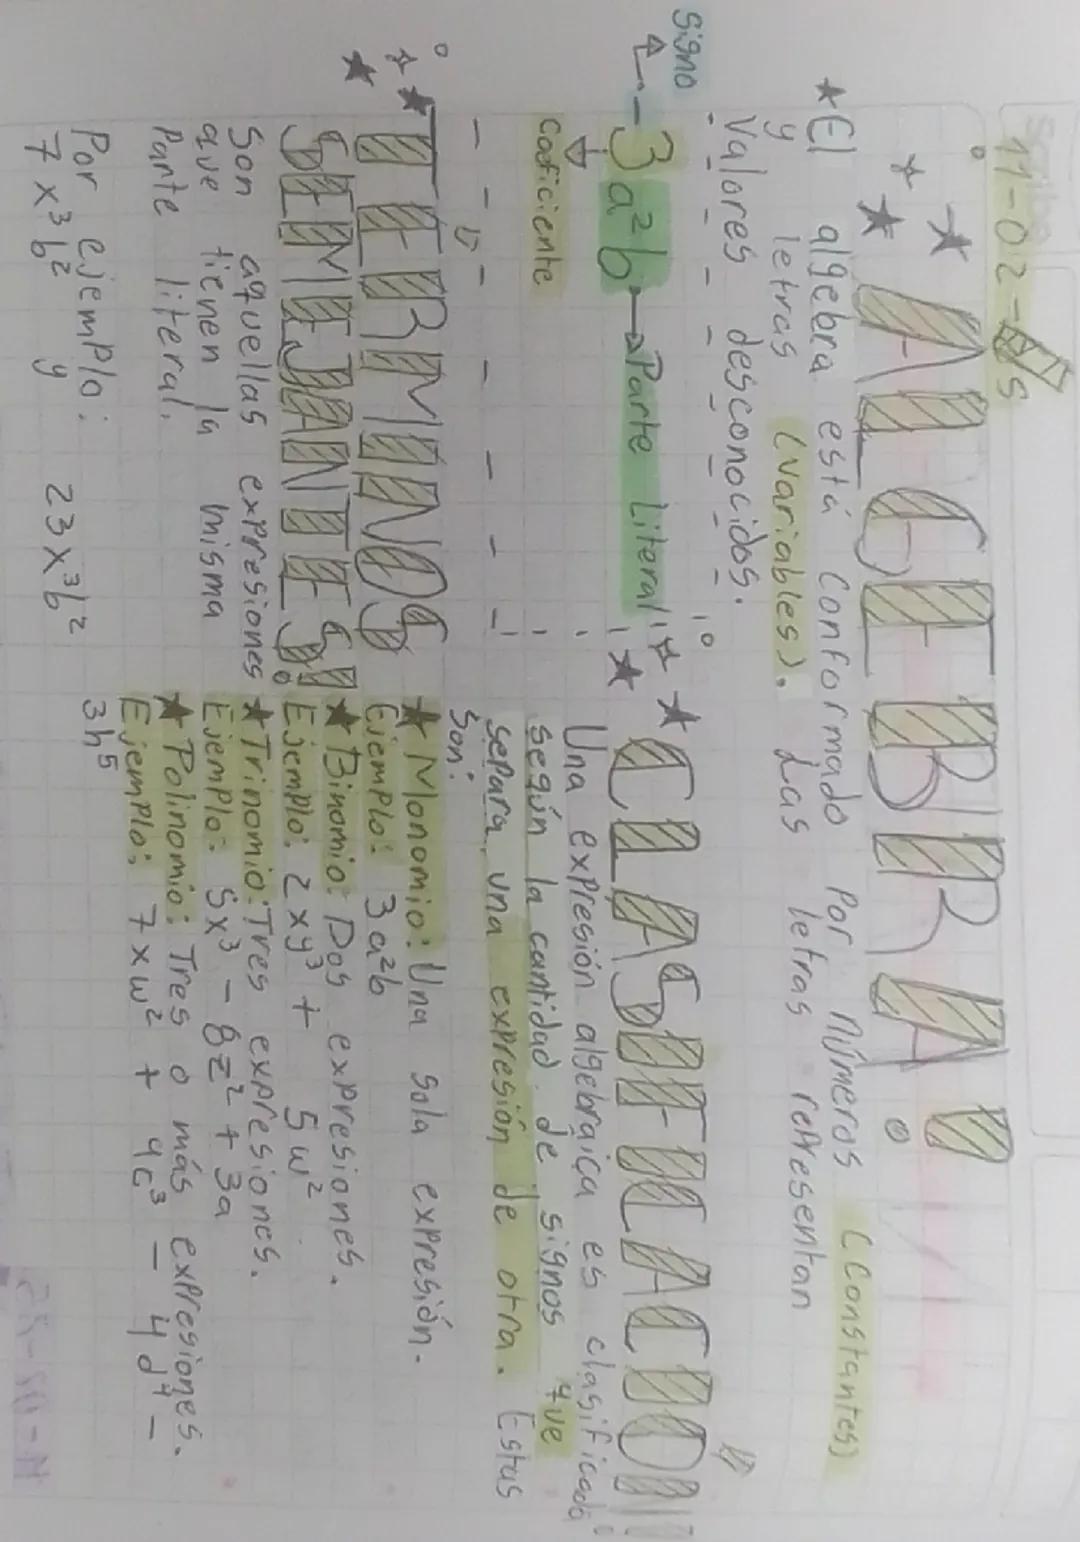 11-02-25
ALGEBRA
★El algebra está conformado por números (constantes)
y letras (variables). Las letras representan
valores desconocidos.
signo
-3a²b→Parte Literal
coeficiente
CLASIFICACION
Una expresión algebraica es clasificada
según la cantidad de signos que
separa una expresión de otra. Estas
son:
★Monomio: Una sola expresión.
Ejemplo: 3a²b
★Binomio: Dos expresiones.
Ejemplo: 2xy³ + 5w²
★Trinomio: Tres expresiones.
Ejemplo: 5x³ - 8z² + 3a
★Polinomio: Tres o más expresiones.
Ejemplo: 7xw² + 9c³ - 4d⁴ -
3h⁵
TERMINOS
SEMEJANTES
Son aquellas expresiones
que tienen la misma
Parte literal.
Por ejemplo:
7x³b² y 23x³b²